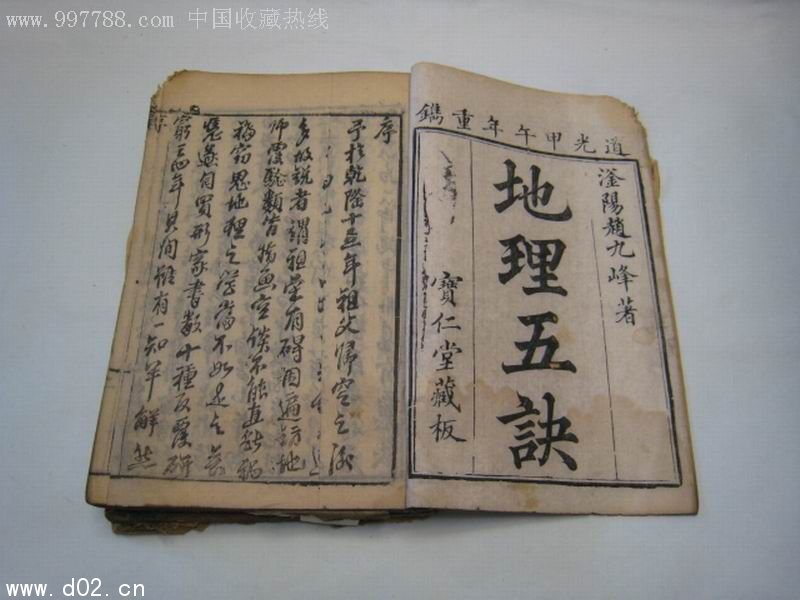 www.997788.com 中国收藏热线
道光甲午年重鐫
滏陽趙九峰著
地理五訣
寶仁堂藏板
序
予於乾隆十五年祖父歸空之後
多故銳者謂祖塋有碍洇遍訪地
師覆驗類皆指画空談不能直斷禍
福窃思地理之學當不如是之
自買形家書数十種反覆研
窮三四年其间雖有一知半解然
序
www.d02.cn